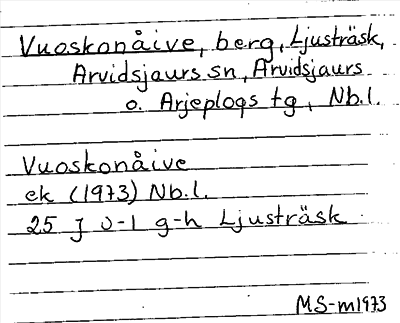 Vuoskonåive, berg, Ljusträsk,
Arvidsjaurs sn, Arvidsjaurs
o. Arjeplogs tg, Nb.l.
Vuoskonåive
ek (1973) Nb.l.
25 J 0-1 g-h Ljusträsk
MS-m1973